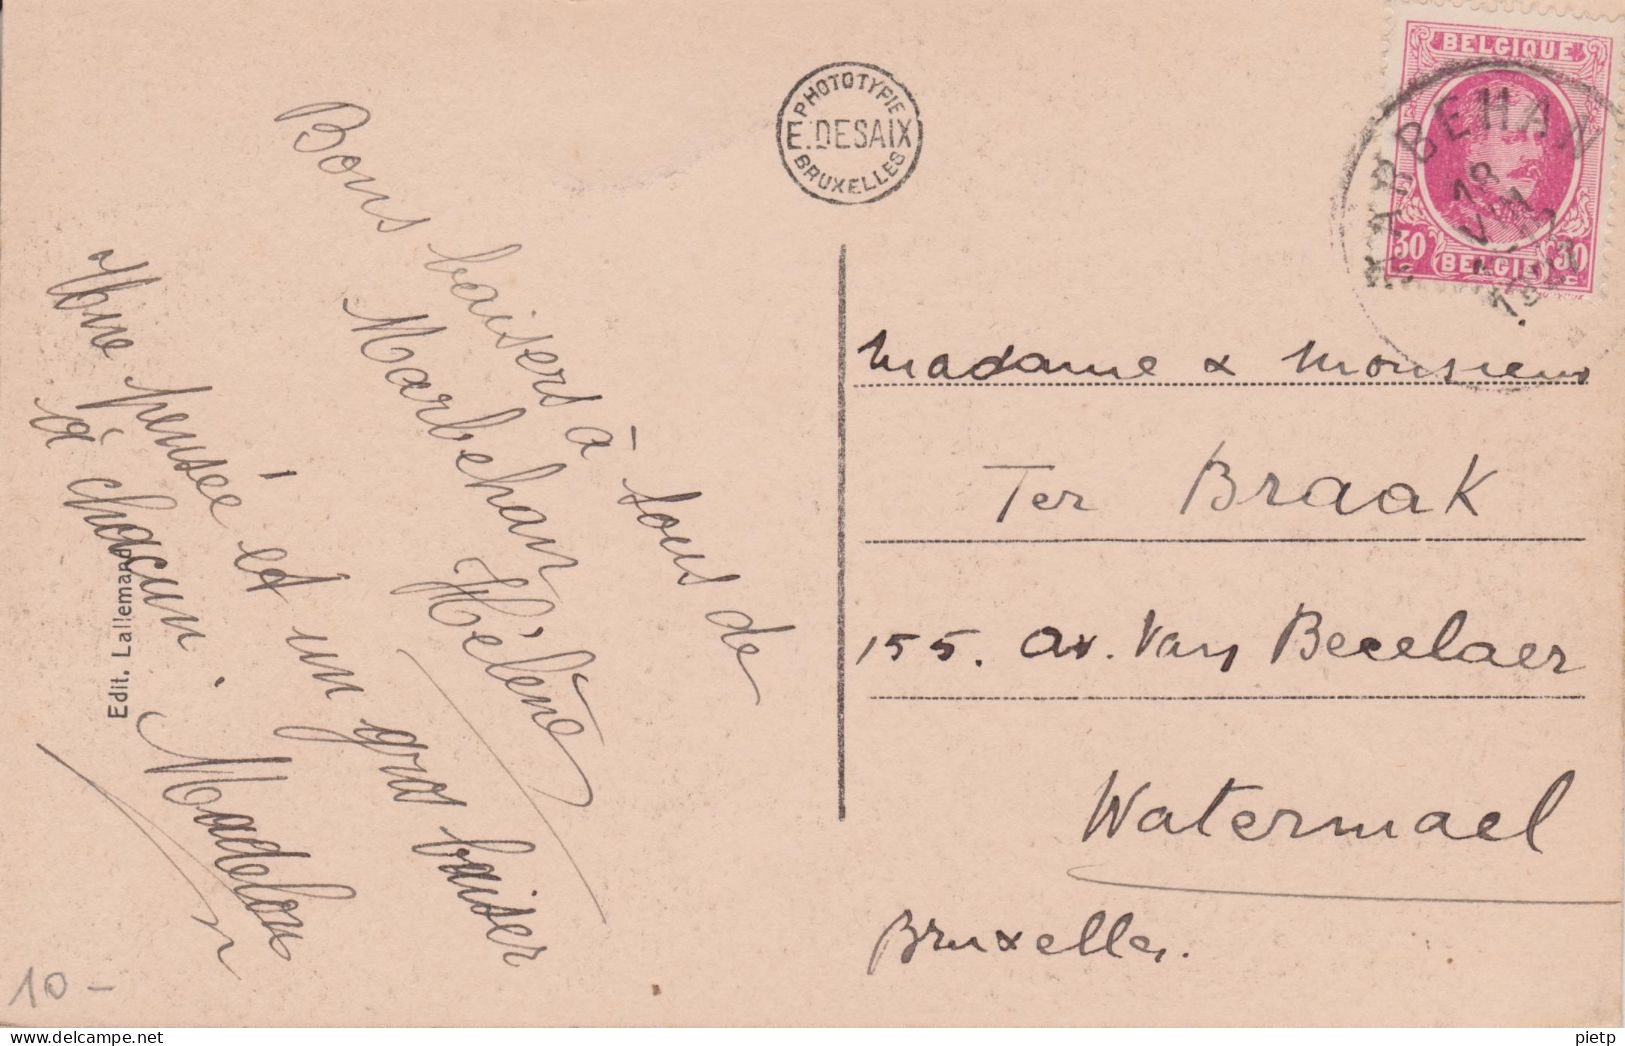 PHOTOTYPIE
E. DESAIX
BRUXELLES
BELGIQUE
30 30
BELGIE
MARBEHAN
18
VIII
Bons baisers à tous de
Marbehan
Hélène
Une pensée et un gros baiser
à chacun.
Madelon
Edit. Lallemand
Madame & Monsieur
Ter Braak
155. av. Van Becelaer
Watermael
Bruxelles.
10 -
delcampe.net
pietp